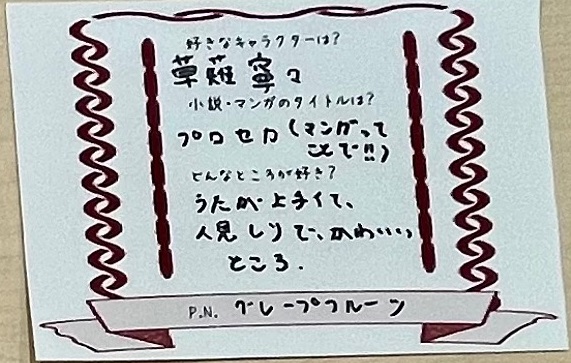 好きなキャラクターは?
草薙寧々
小説・マンガのタイトルは?
プロセカ(マンガって
ことで!!)
どんなところが好き?
うたが上手くて、
人見しりで、かわいい
ところ.
P.N. グレープフルーツ